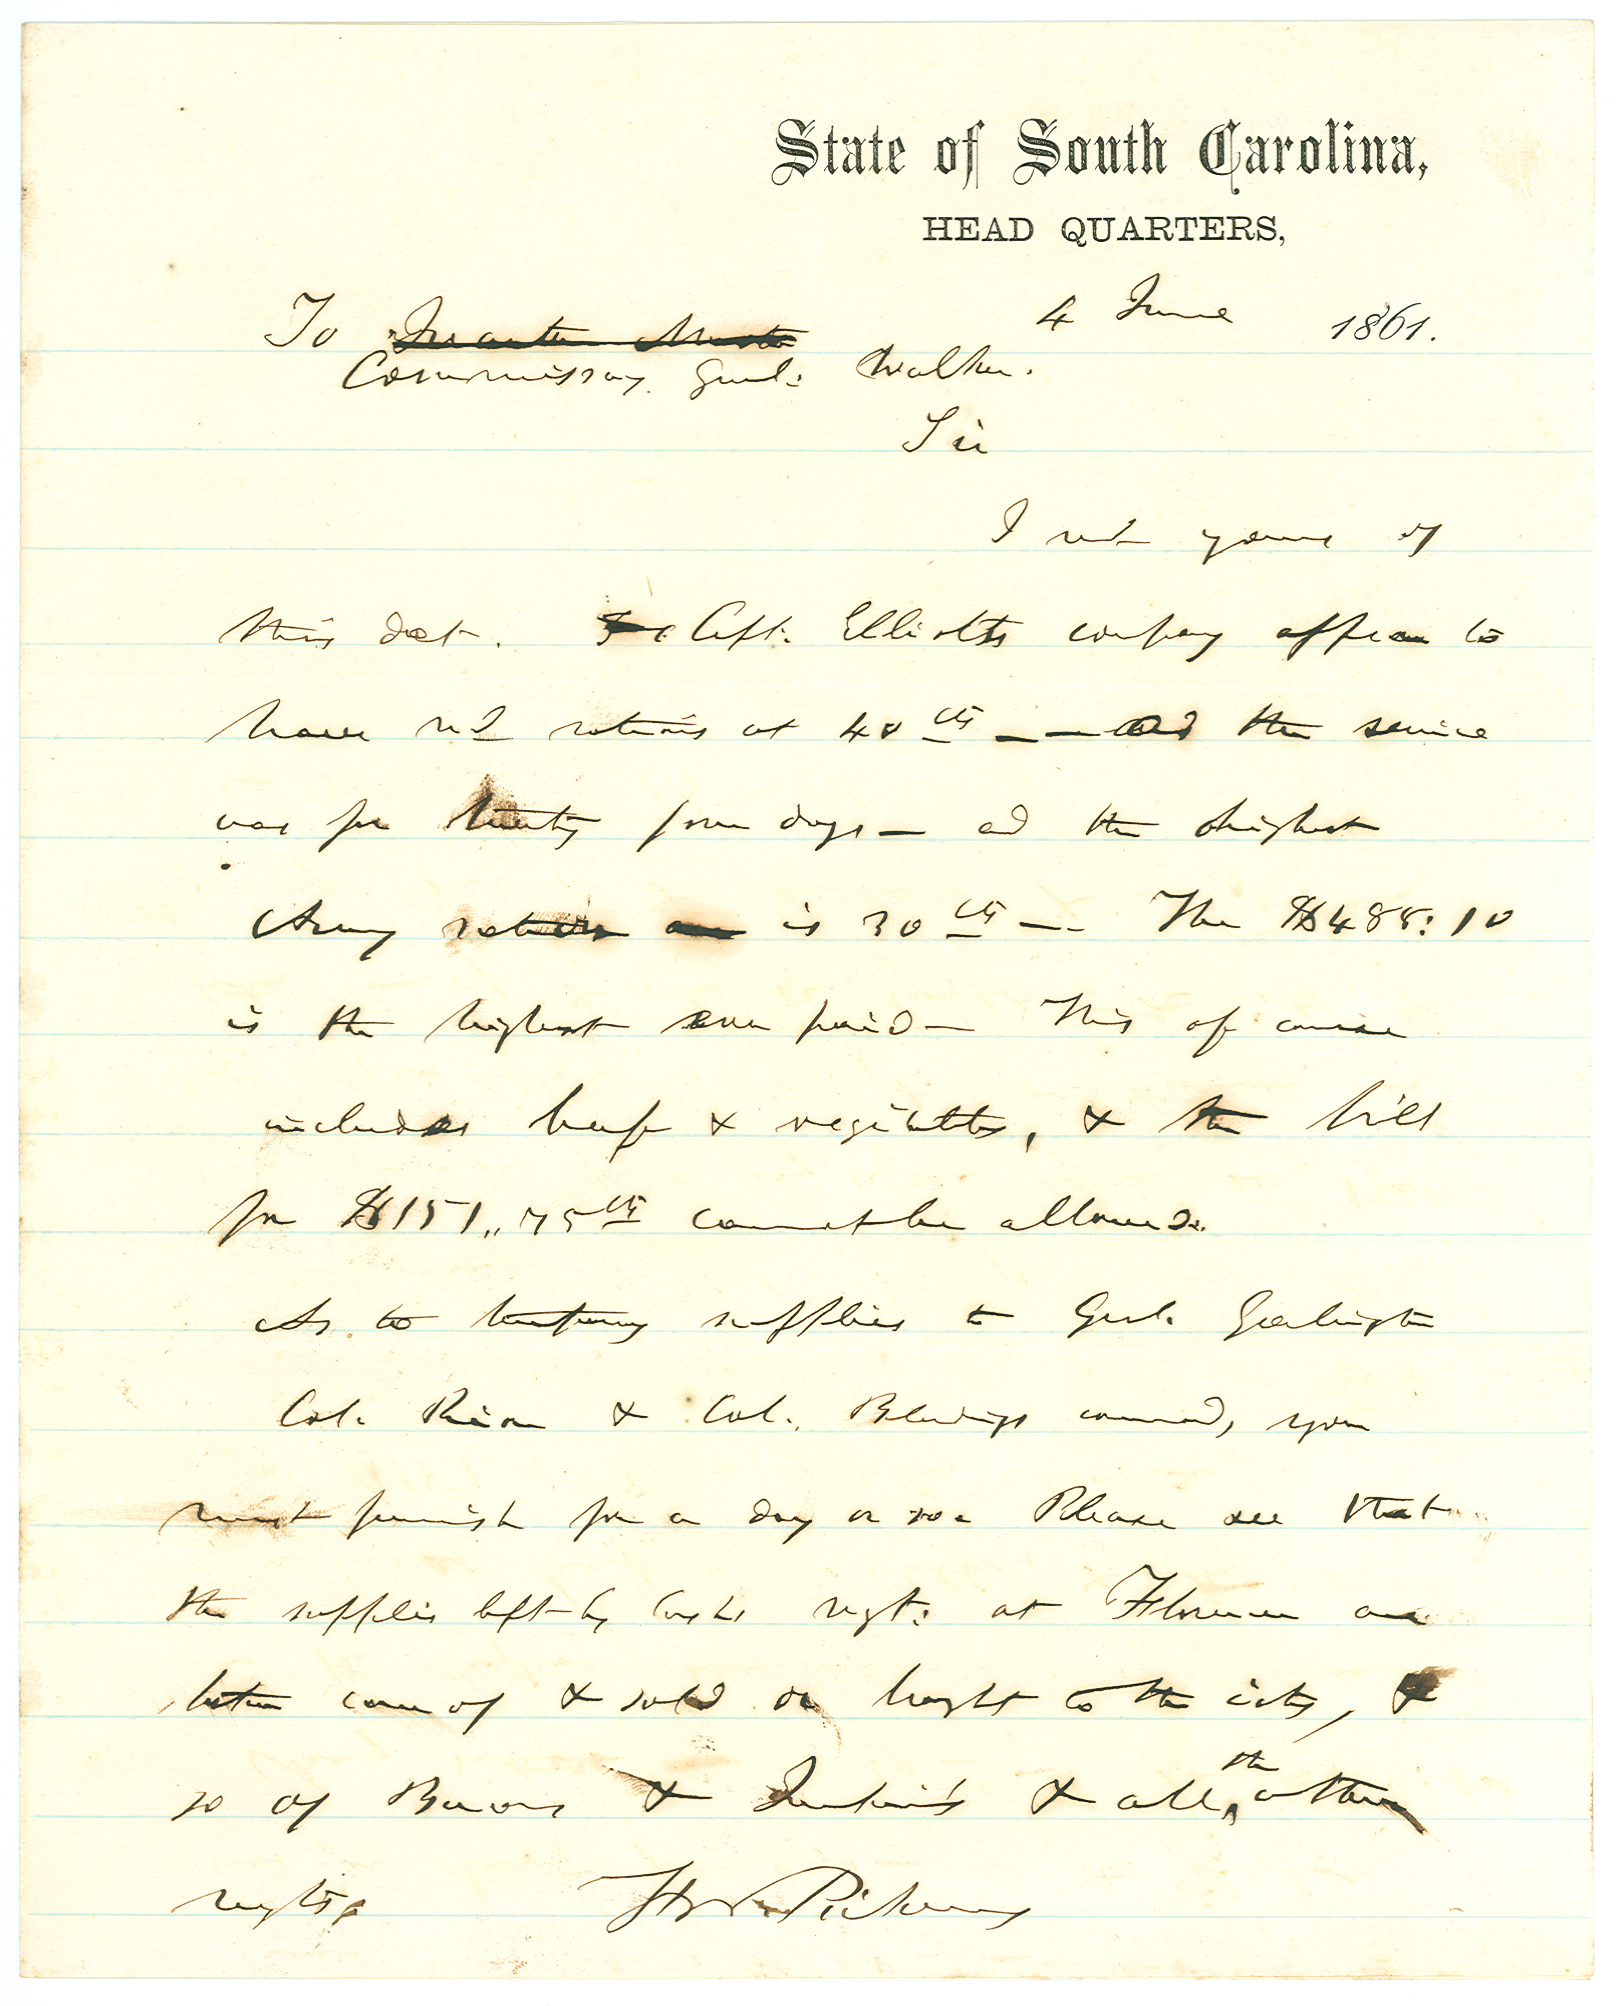 State of South Carolina,
HEAD QUARTERS,
4 June 1861.
To Quarter Master
Commissary Genl: Walker.
Sir
I recd yours of
this dat. Capt: Elliotts company appear to
have recd rations at 40 cts — and the service
was for twenty four days — and the highest
Army ration is 30 cts — The $488:10
is the highest ever paid — This of course
includes beef & vegitables, & the bill
for $151,,75 cts cannot be allowed.
As to temporary supplies to Genl. Garlington
Col. Rion & Col. Blandings command, you
must furnish for a day or so. Please see that
the supplies left by Cash's regt: at Florence are
taken care of & sold or brought to the city, &
so of Bacons & Jenkin's & all the other
regts.
F W Pickens